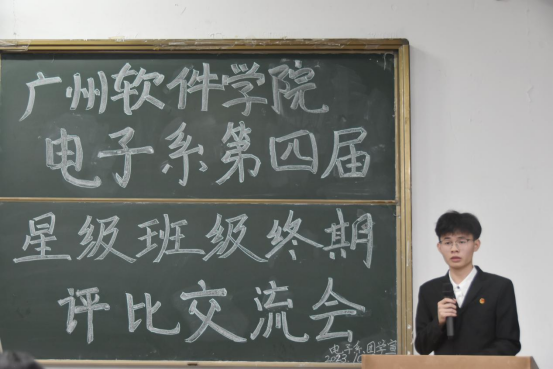 广州软件学院
电子系第四届
星级班级终期
评比交流会
电子系团学宣